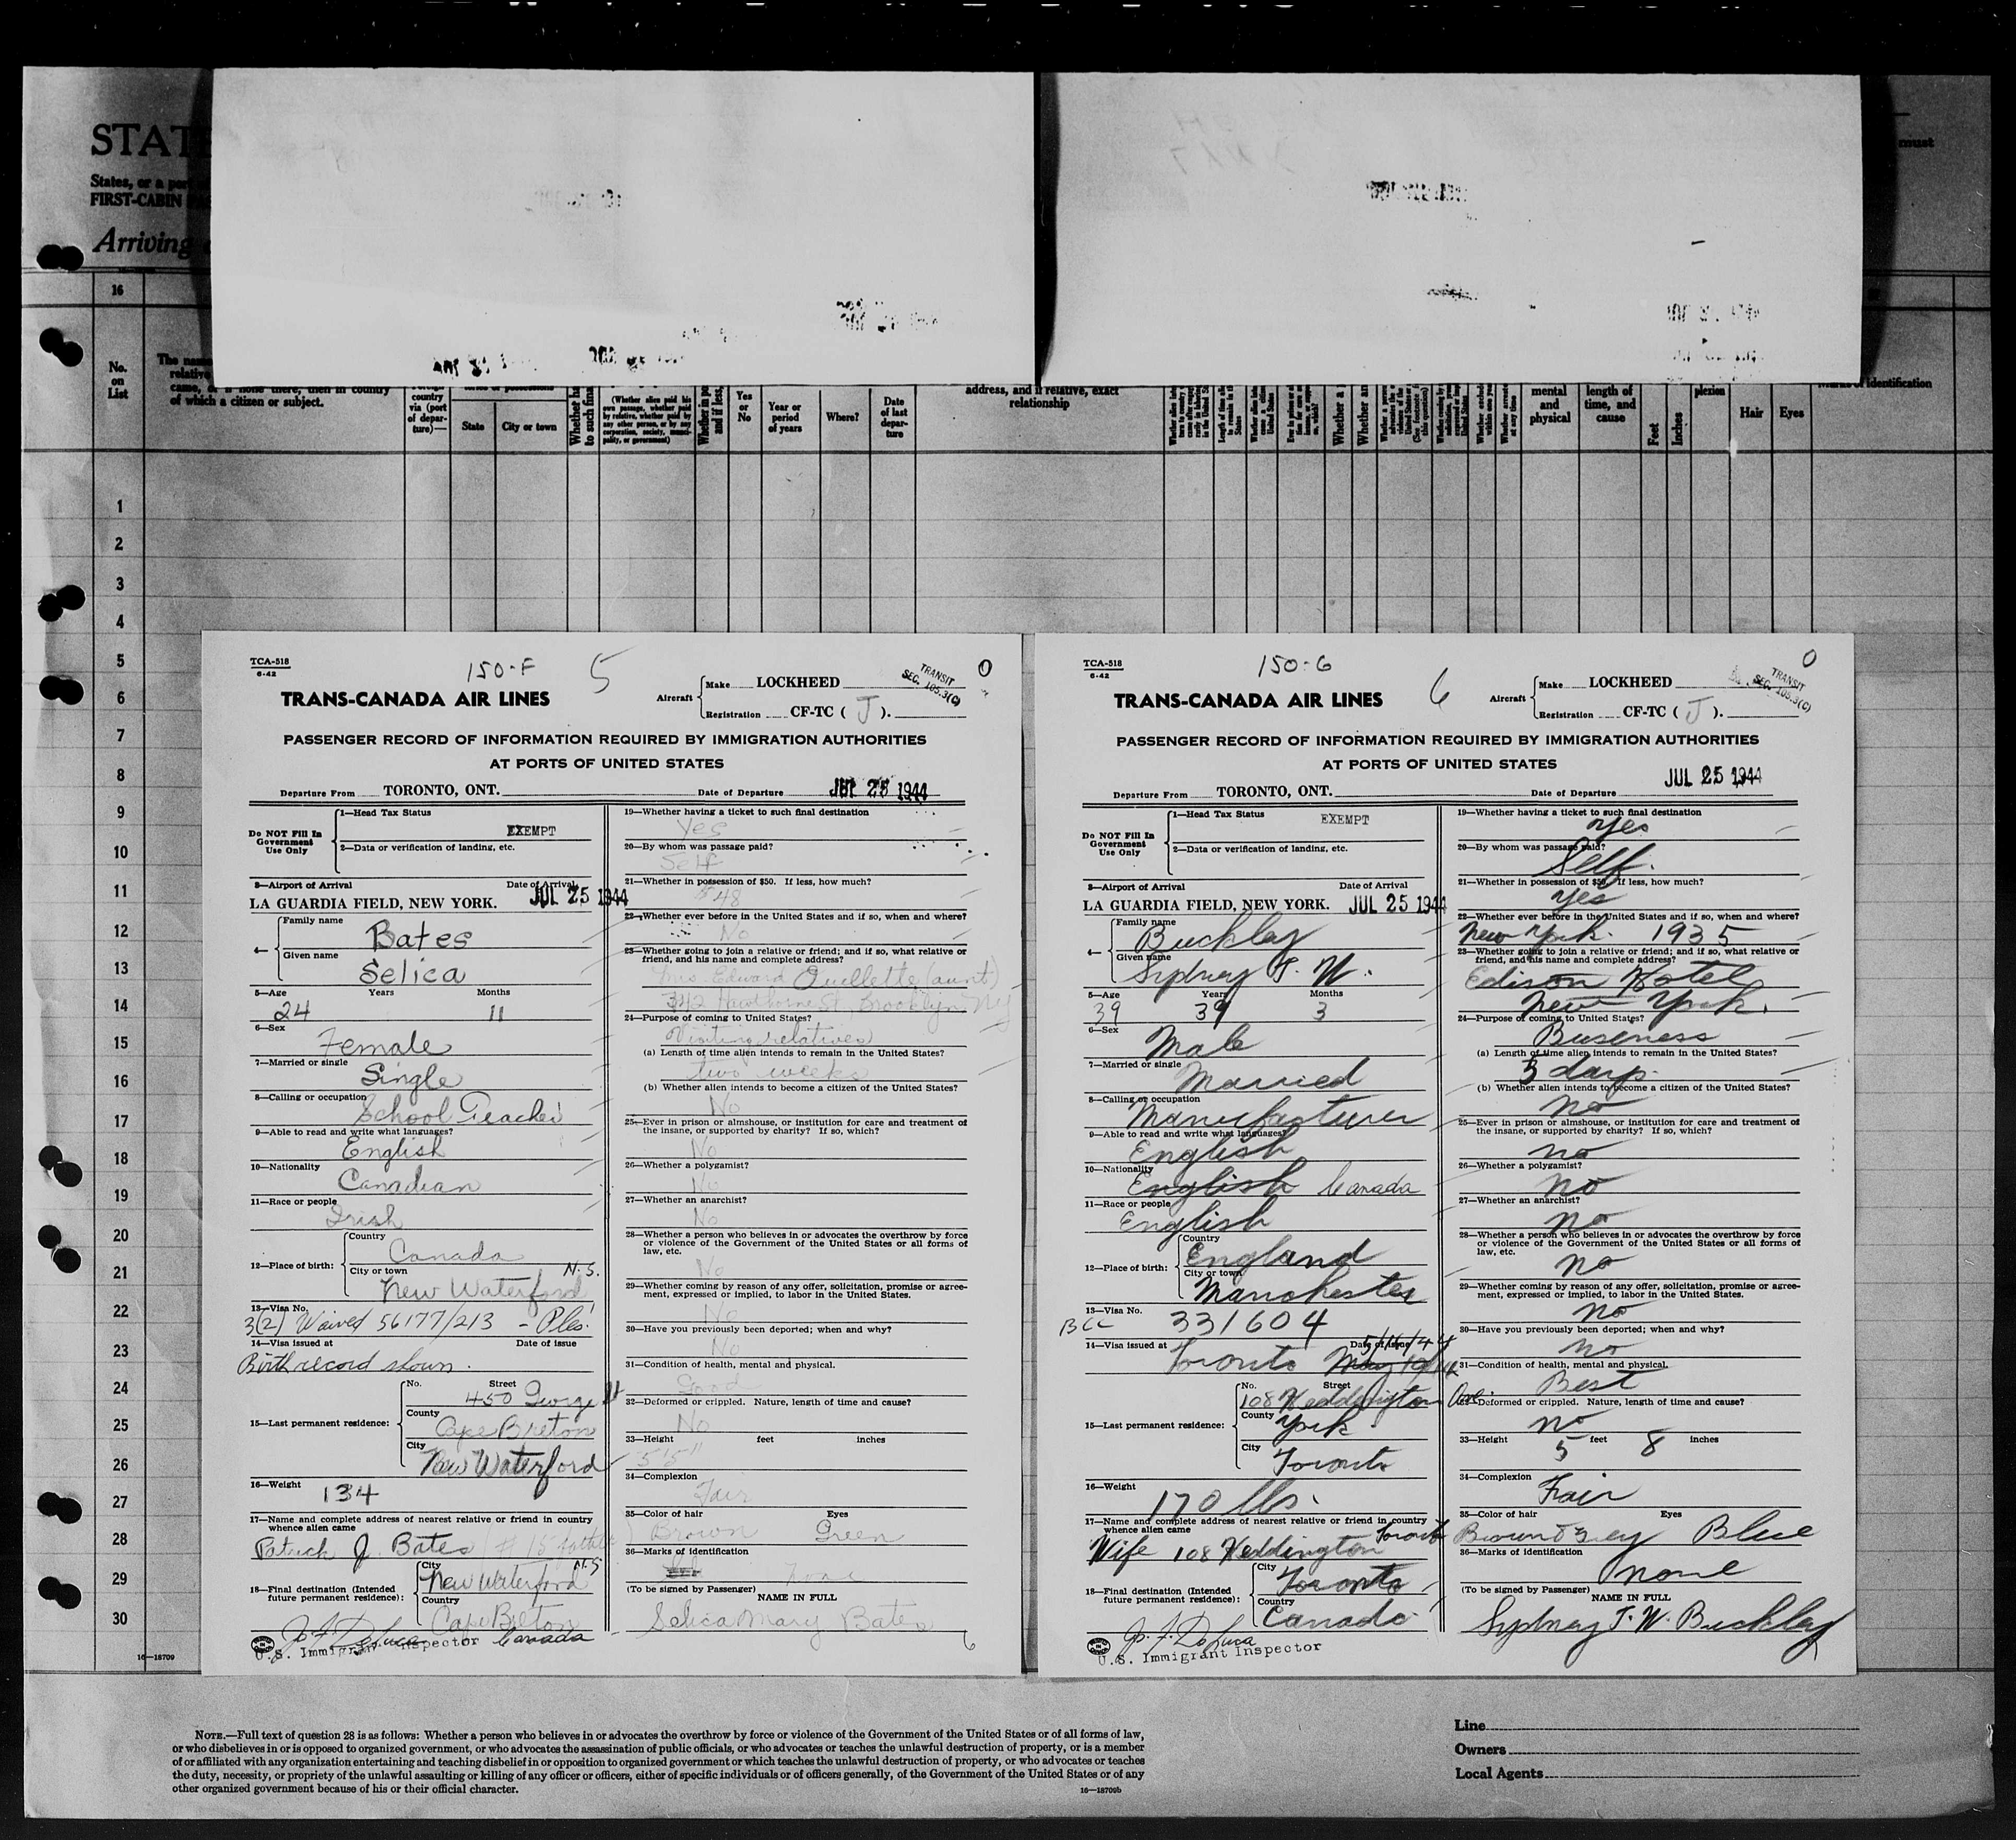 STATE
States, or a port
FIRST-CABIN
Arriving
must
16
No. on List
relative
came, or if none there, then in country
of which a citizen or subject.
country
via (port
of depar-
ture)—
State
City or town
(Whether alien paid his
own passage, whether paid
by relative, whether paid by
any other person, or by any
corporation, society, munici-
pality, or government)
Yes
or
No
Year or
period
of years
Where?
Date
of last
depar-
ture
address, and if relative, exact
relationship
mental
and
physical
length of
time, and
cause
Feet
Inches
plexion
Hair
Eyes
Marks of identification
1
2
3
4
5
6
7
8
9
10
11
12
13
14
15
16
17
18
19
20
21
22
23
24
25
26
27
28
29
30
16—18709
TCA-518
6-42
150-F 5
TRANSIT
SEC. 105.3(C)
0
TRANS-CANADA AIR LINES
Aircraft
Make LOCKHEED
Registration CF-TC ( J ).
PASSENGER RECORD OF INFORMATION REQUIRED BY IMMIGRATION AUTHORITIES
AT PORTS OF UNITED STATES
Departure From TORONTO, ONT. Date of Departure JUL 25 1944
Do NOT Fill In
Government
Use Only
1—Head Tax Status
EXEMPT
2—Data or verification of landing, etc.
3—Airport of Arrival Date of Arrival
LA GUARDIA FIELD, NEW YORK. JUL 25 1944
4— Family name
Bates
Given name
Selica
5—Age Years Months
24 11
6—Sex
Female
7—Married or single
Single
8—Calling or occupation
School Teacher
9—Able to read and write what languages?
English
10—Nationality
Canadian
11—Race or people
Irish
12—Place of birth:
Country
Canada
City or town N.S.
New Waterford
13—Visa No.
3(2) Waived 56177/213 - Ples.
14—Visa issued at Date of issue
Birth record shown.
15—Last permanent residence:
No. Street
450 George St
County
Cape Breton
City
New Waterford
16—Weight
134
17—Name and complete address of nearest relative or friend in country
whence alien came
Patrick J. Bates (#15 father)
18—Final destination (Intended
future permanent residence):
City N.S
New Waterford
Country
Cape Breton
Canada
J. F. DeLuca
U.S. Immigrant Inspector
19—Whether having a ticket to such final destination
Yes
20—By whom was passage paid?
Self
21—Whether in possession of $50. If less, how much?
$48
22—Whether ever before in the United States and if so, when and where?
No
23—Whether going to join a relative or friend; and if so, what relative or
friend, and his name and complete address?
Mrs Edward Ouellette (aunt)
342 Hawthorne St, Brooklyn NY
24—Purpose of coming to United States?
Visiting relatives
(a) Length of time alien intends to remain in the United States?
two weeks
(b) Whether alien intends to become a citizen of the United States?
No
25—Ever in prison or almshouse, or institution for care and treatment of
the insane, or supported by charity? If so, which?
No
26—Whether a polygamist?
No
27—Whether an anarchist?
No
28—Whether a person who believes in or advocates the overthrow by force
or violence of the Government of the United States or all forms of
law, etc.
No
29—Whether coming by reason of any offer, solicitation, promise or agree-
ment, expressed or implied, to labor in the United States.
No
30—Have you previously been deported; when and why?
No
31—Condition of health, mental and physical.
Good
32—Deformed or crippled. Nature, length of time and cause?
No
33—Height feet inches
5'5"
34—Complexion
Fair
35—Color of hair Eyes
Brown Green
36—Marks of identification
None
(To be signed by Passenger) NAME IN FULL
Selica Mary Bates
6
TCA-518
6-42
150-G 6
TRANSIT
SEC. 105.3(C)
0
TRANS-CANADA AIR LINES
Aircraft
Make LOCKHEED
Registration CF-TC ( J ).
PASSENGER RECORD OF INFORMATION REQUIRED BY IMMIGRATION AUTHORITIES
AT PORTS OF UNITED STATES
Departure From TORONTO, ONT. Date of Departure JUL 25 1944
Do NOT Fill In
Government
Use Only
1—Head Tax Status
EXEMPT
2—Data or verification of landing, etc.
3—Airport of Arrival Date of Arrival
LA GUARDIA FIELD, NEW YORK. JUL 25 1944
4— Family name
Buckley
Given name
Sydney T. W.
5—Age Years Months
39 39 3
6—Sex
Male
7—Married or single
Married
8—Calling or occupation
Manufacturer
9—Able to read and write what languages?
English
10—Nationality
English Canada
11—Race or people
English
12—Place of birth:
Country
England
City or town
Manchester
13—Visa No.
BCC 331604
14—Visa issued at Date of issue
Toronto May 19/44 5/16/44
15—Last permanent residence:
No. Street
108 Keddington Ave.
County
York
City
Toronto
16—Weight
170 lbs.
17—Name and complete address of nearest relative or friend in country
whence alien came
Wife 108 Keddington Toronto
18—Final destination (Intended
future permanent residence):
City
Toronto
Country
Canada
J. F. DeLuca
U.S. Immigrant Inspector
19—Whether having a ticket to such final destination
yes
20—By whom was passage paid?
Self.
21—Whether in possession of $50. If less, how much?
yes
22—Whether ever before in the United States and if so, when and where?
New York. 1935
23—Whether going to join a relative or friend; and if so, what relative or
friend, and his name and complete address?
Edison Hotel
New York.
24—Purpose of coming to United States?
Buseness
(a) Length of time alien intends to remain in the United States?
3 days.
(b) Whether alien intends to become a citizen of the United States?
no
25—Ever in prison or almshouse, or institution for care and treatment of
the insane, or supported by charity? If so, which?
no
26—Whether a polygamist?
no
27—Whether an anarchist?
no
28—Whether a person who believes in or advocates the overthrow by force
or violence of the Government of the United States or all forms of
law, etc.
no
29—Whether coming by reason of any offer, solicitation, promise or agree-
ment, expressed or implied, to labor in the United States.
no
30—Have you previously been deported; when and why?
no
31—Condition of health, mental and physical.
Best
32—Deformed or crippled. Nature, length of time and cause?
no
33—Height feet inches
5 8
34—Complexion
Fair
35—Color of hair Eyes
Brown & Grey Blue
36—Marks of identification
none
(To be signed by Passenger) NAME IN FULL
Sydney T. W. Buckley
NOTE.—Full text of question 28 is as follows: Whether a person who believes in or advocates the overthrow by force or violence of the Government of the United States or of all forms of law,
or who disbelieves in or is opposed to organized government, or who advocates the assassination of public officials, or who advocates or teaches the unlawful destruction of property, or is a member
of or affiliated with any organization entertaining and teaching disbelief in or opposition to organized government or which teaches the unlawful destruction of property, or who advocates or teaches
the duty, necessity, or propriety of the unlawful assaulting or killing of any officer or officers, either of specific individuals or of officers generally, of the Government of the United States or of any
other organized government because of his or their official character.
16—18709b
Line
Owners
Local Agents